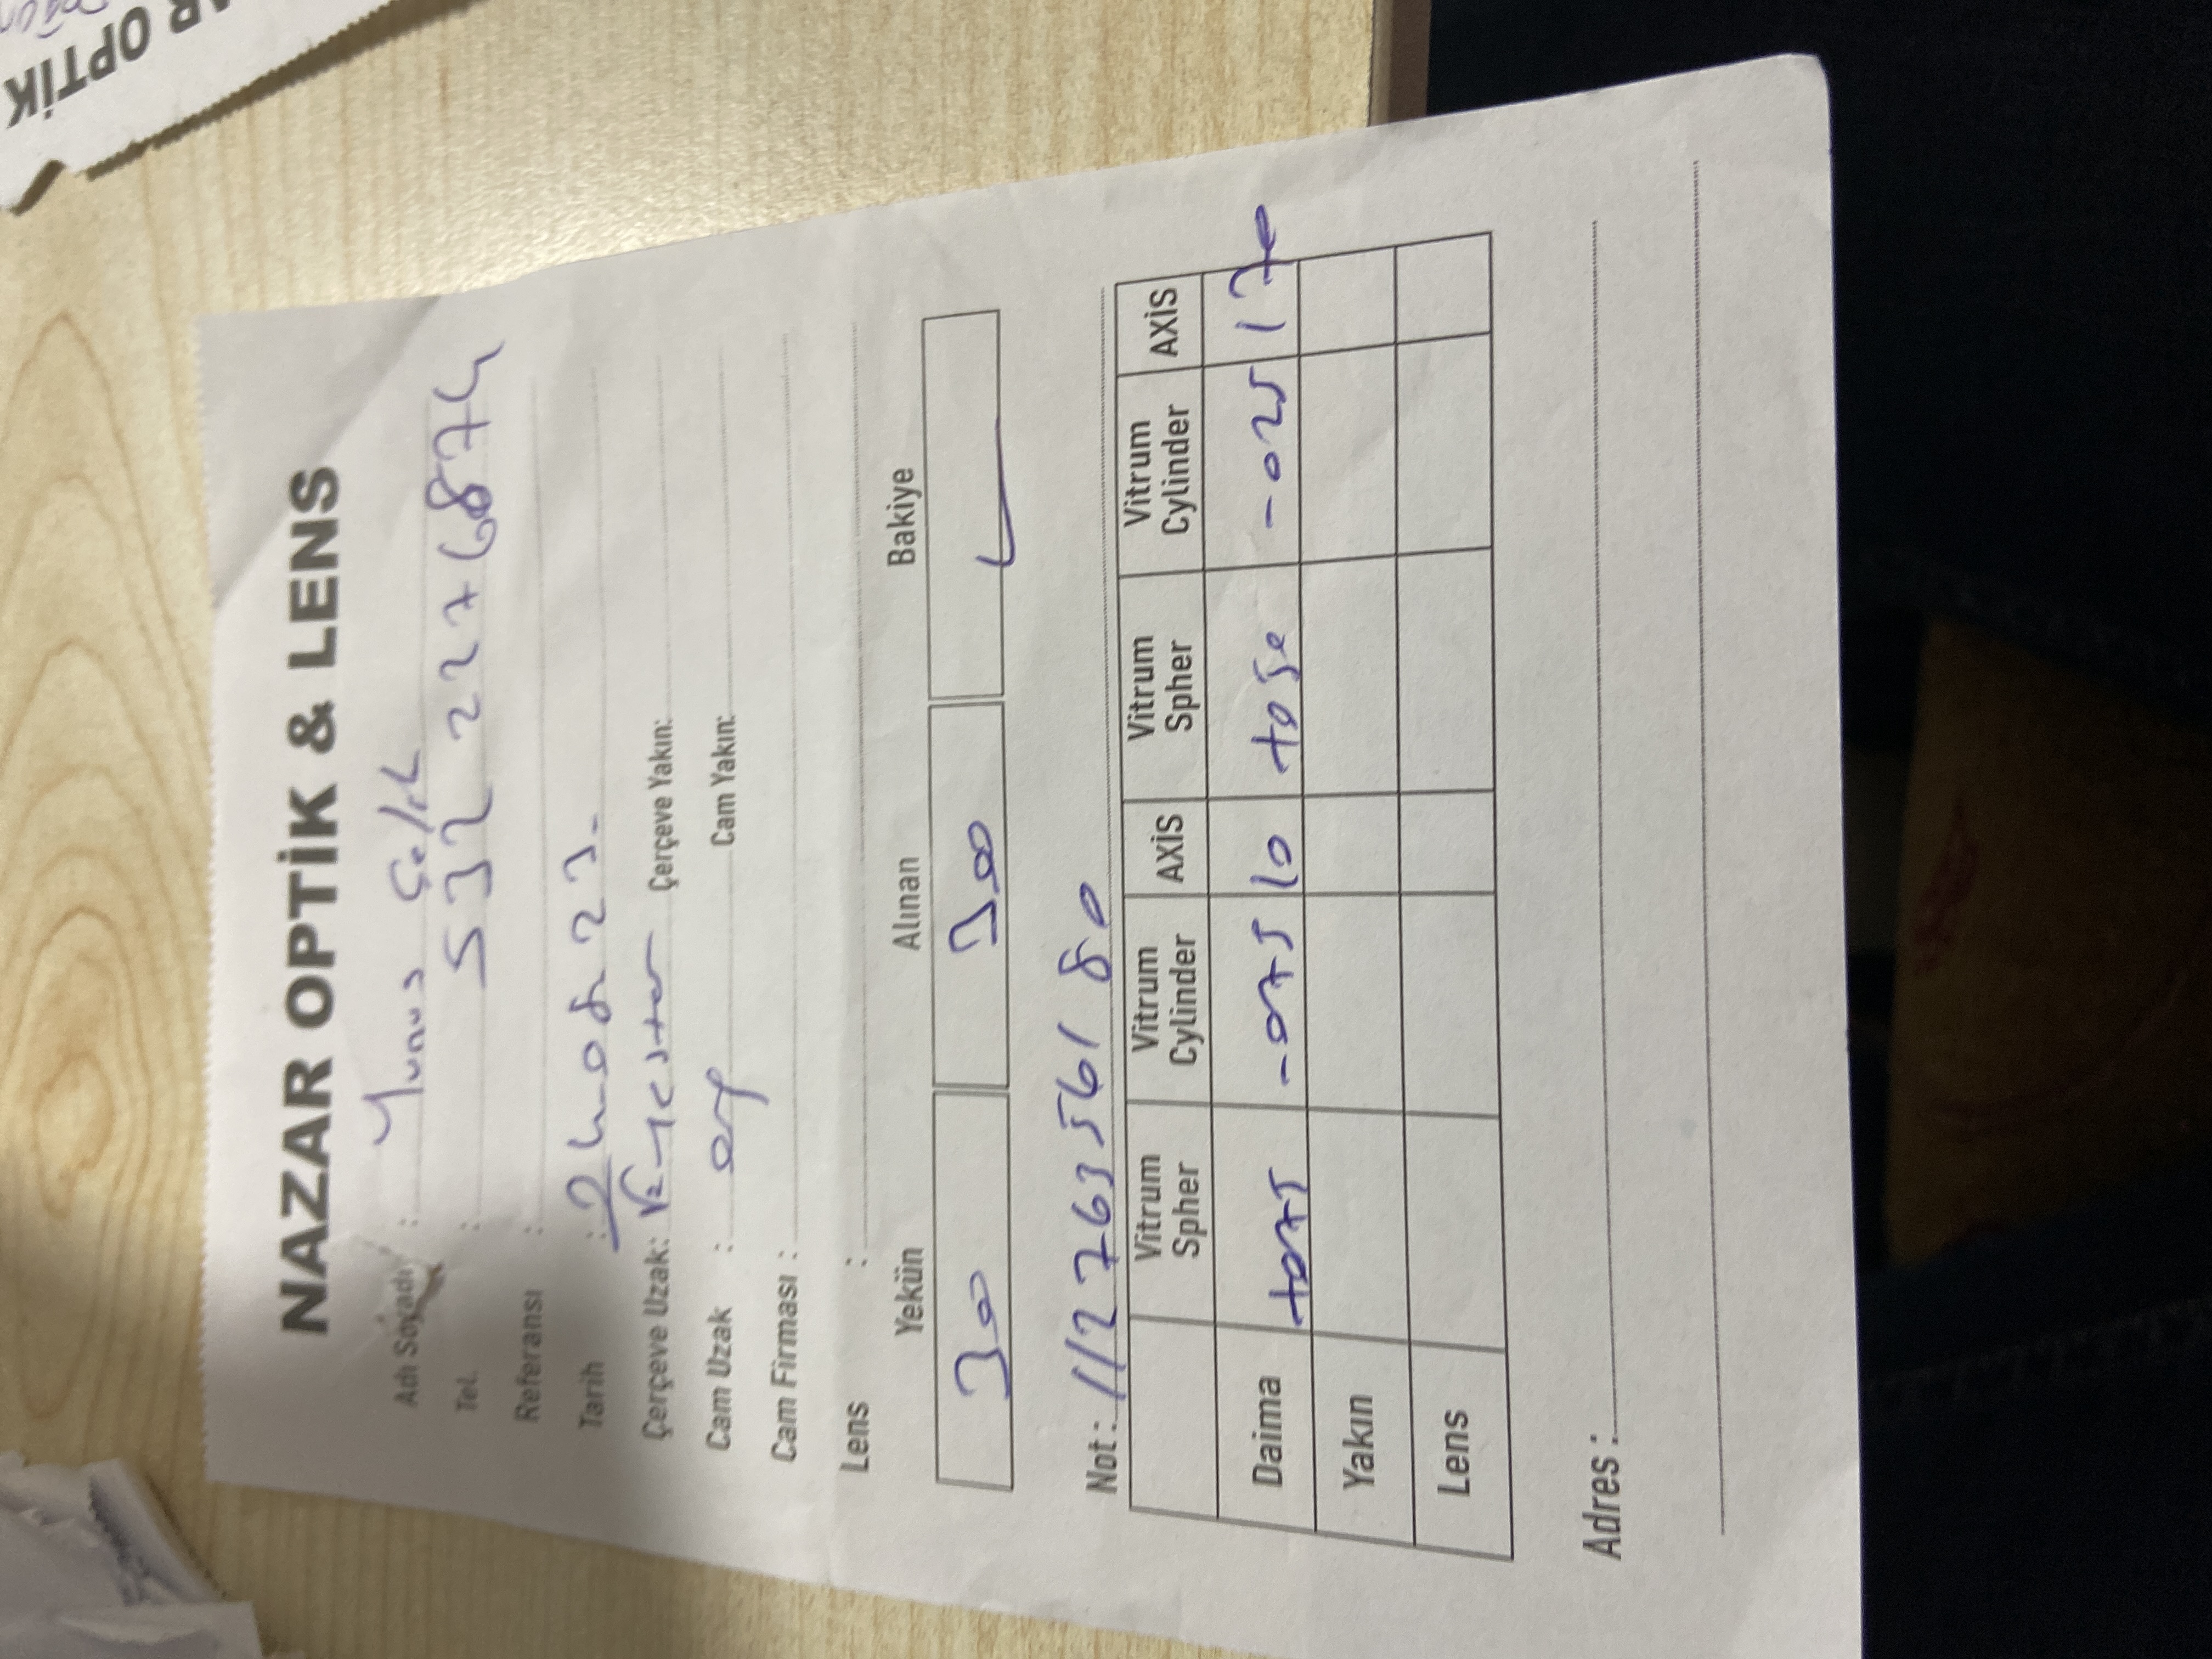 NAZAR OPTİK & LENS
Adı Soyadı : Yunus Çelik
Tel. : 532 2276874
Referansı :
Tarih : 24.08.23.
Çerçeve Uzak: Çerçeve Yakın:
Cam Uzak : Cam Yakın:
Cam Firması :
Lens :
Yekün Alınan Bakiye
300 300
Not : 112763561 80
Vitrum Spher Vitrum Cylinder AXİS Vitrum Spher Vitrum Cylinder AXİS
Daima +075 -075 10 +050 -025 170
Yakın
Lens
Adres :
OPTİK